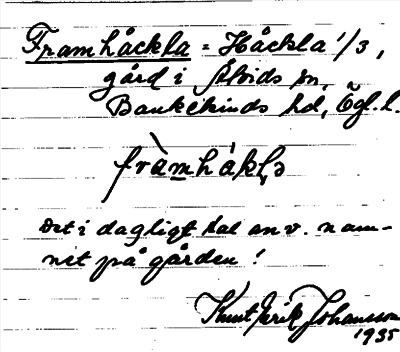 Framhåckla = Håckla 1/3,
gård i Åtvids sn,
Bankekinds hd, Ögl. l.
fràmhákḷə
Det i dagligt tal anv. nam-
net på gården!
Knut Erik Johansson
1935